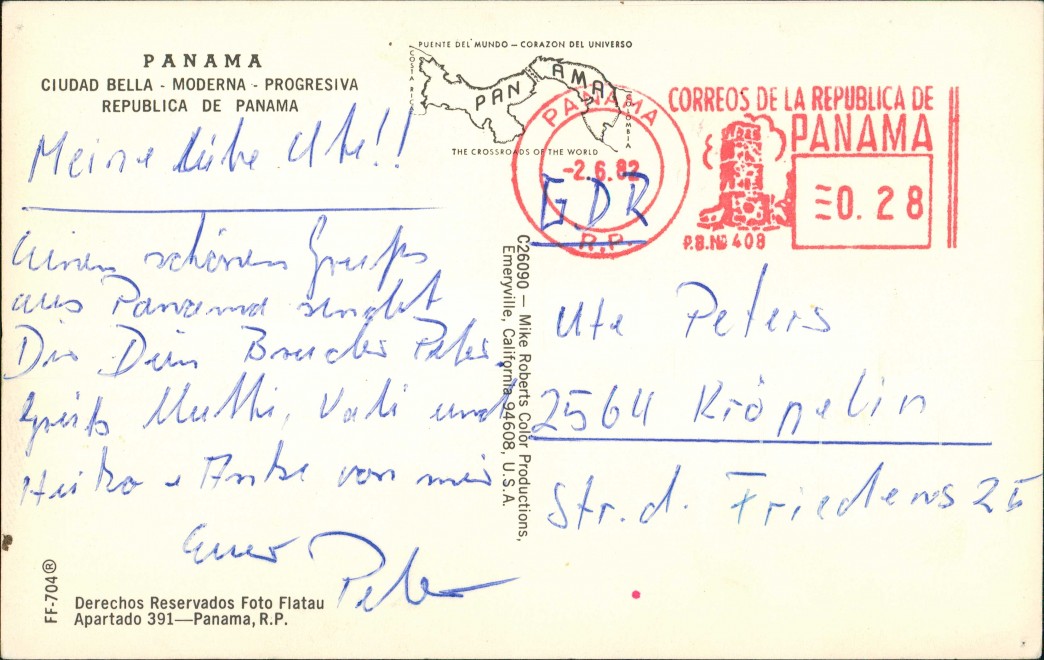 PANAMA
CIUDAD BELLA - MODERNA - PROGRESIVA
REPUBLICA DE PANAMA
Meine liebe Ute!!
einen schönen Gruß
aus Panama sendet
Dir Dein Bruder Peter.
Grüß Mutti, Vati und
Heiko + Antje von mir
Euer
Peter
FF-704®
Derechos Reservados Foto Flatau
Apartado 391—Panama, R.P.
PUENTE DEL MUNDO — CORAZON DEL UNIVERSO
COSTA RICA
PANAMA
COLOMBIA
THE CROSSROADS OF THE WORLD
C26090 — Mike Roberts Color Productions,
Emeryville, California 94608, U.S.A.
PANAMA
-2.6.82
R.P.
CORREOS DE LA REPUBLICA DE
PANAMA
P.B.Nº 408
0.28
GDR
Ute Peters
2564 Kröpelin
Str. d. Friedens 25